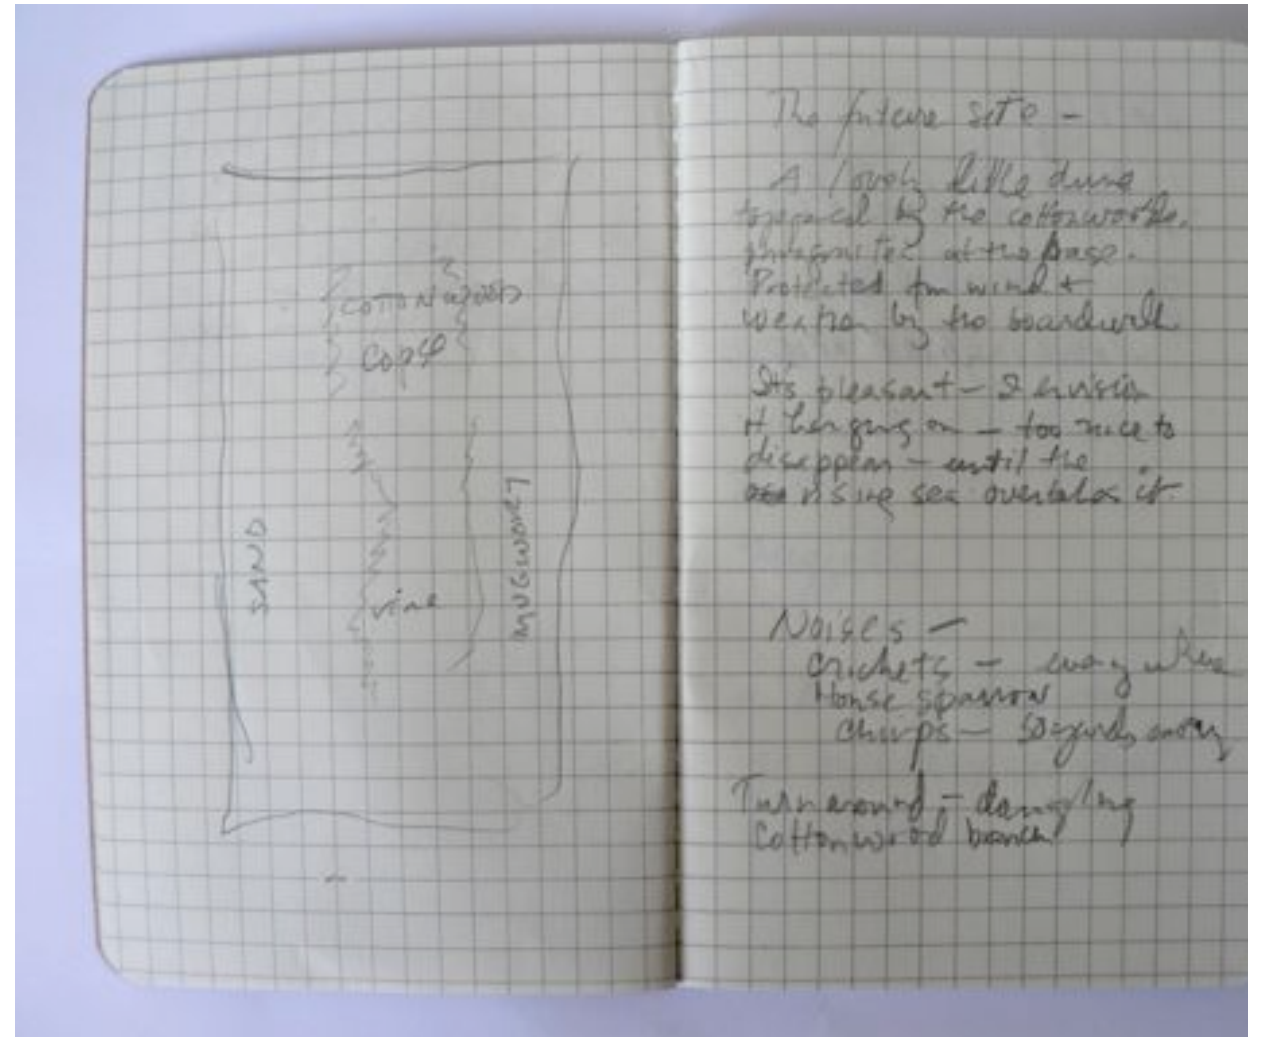 COTTONWOOD
COPSE
SAND
vine
MUGWORT
The future site -
A lovely little dune
by the cottonwoods,
phragmites at the base.
Protected fm wind +
weather by the boardwalk
It's pleasant - I envision
it hanging on - too nice to
disappear - until the
rising sea overtakes it
Noises -
Crickets - everywhere
House sparrow
chirps - 50 yards away
Turnaround - dangling
Cottonwood branch